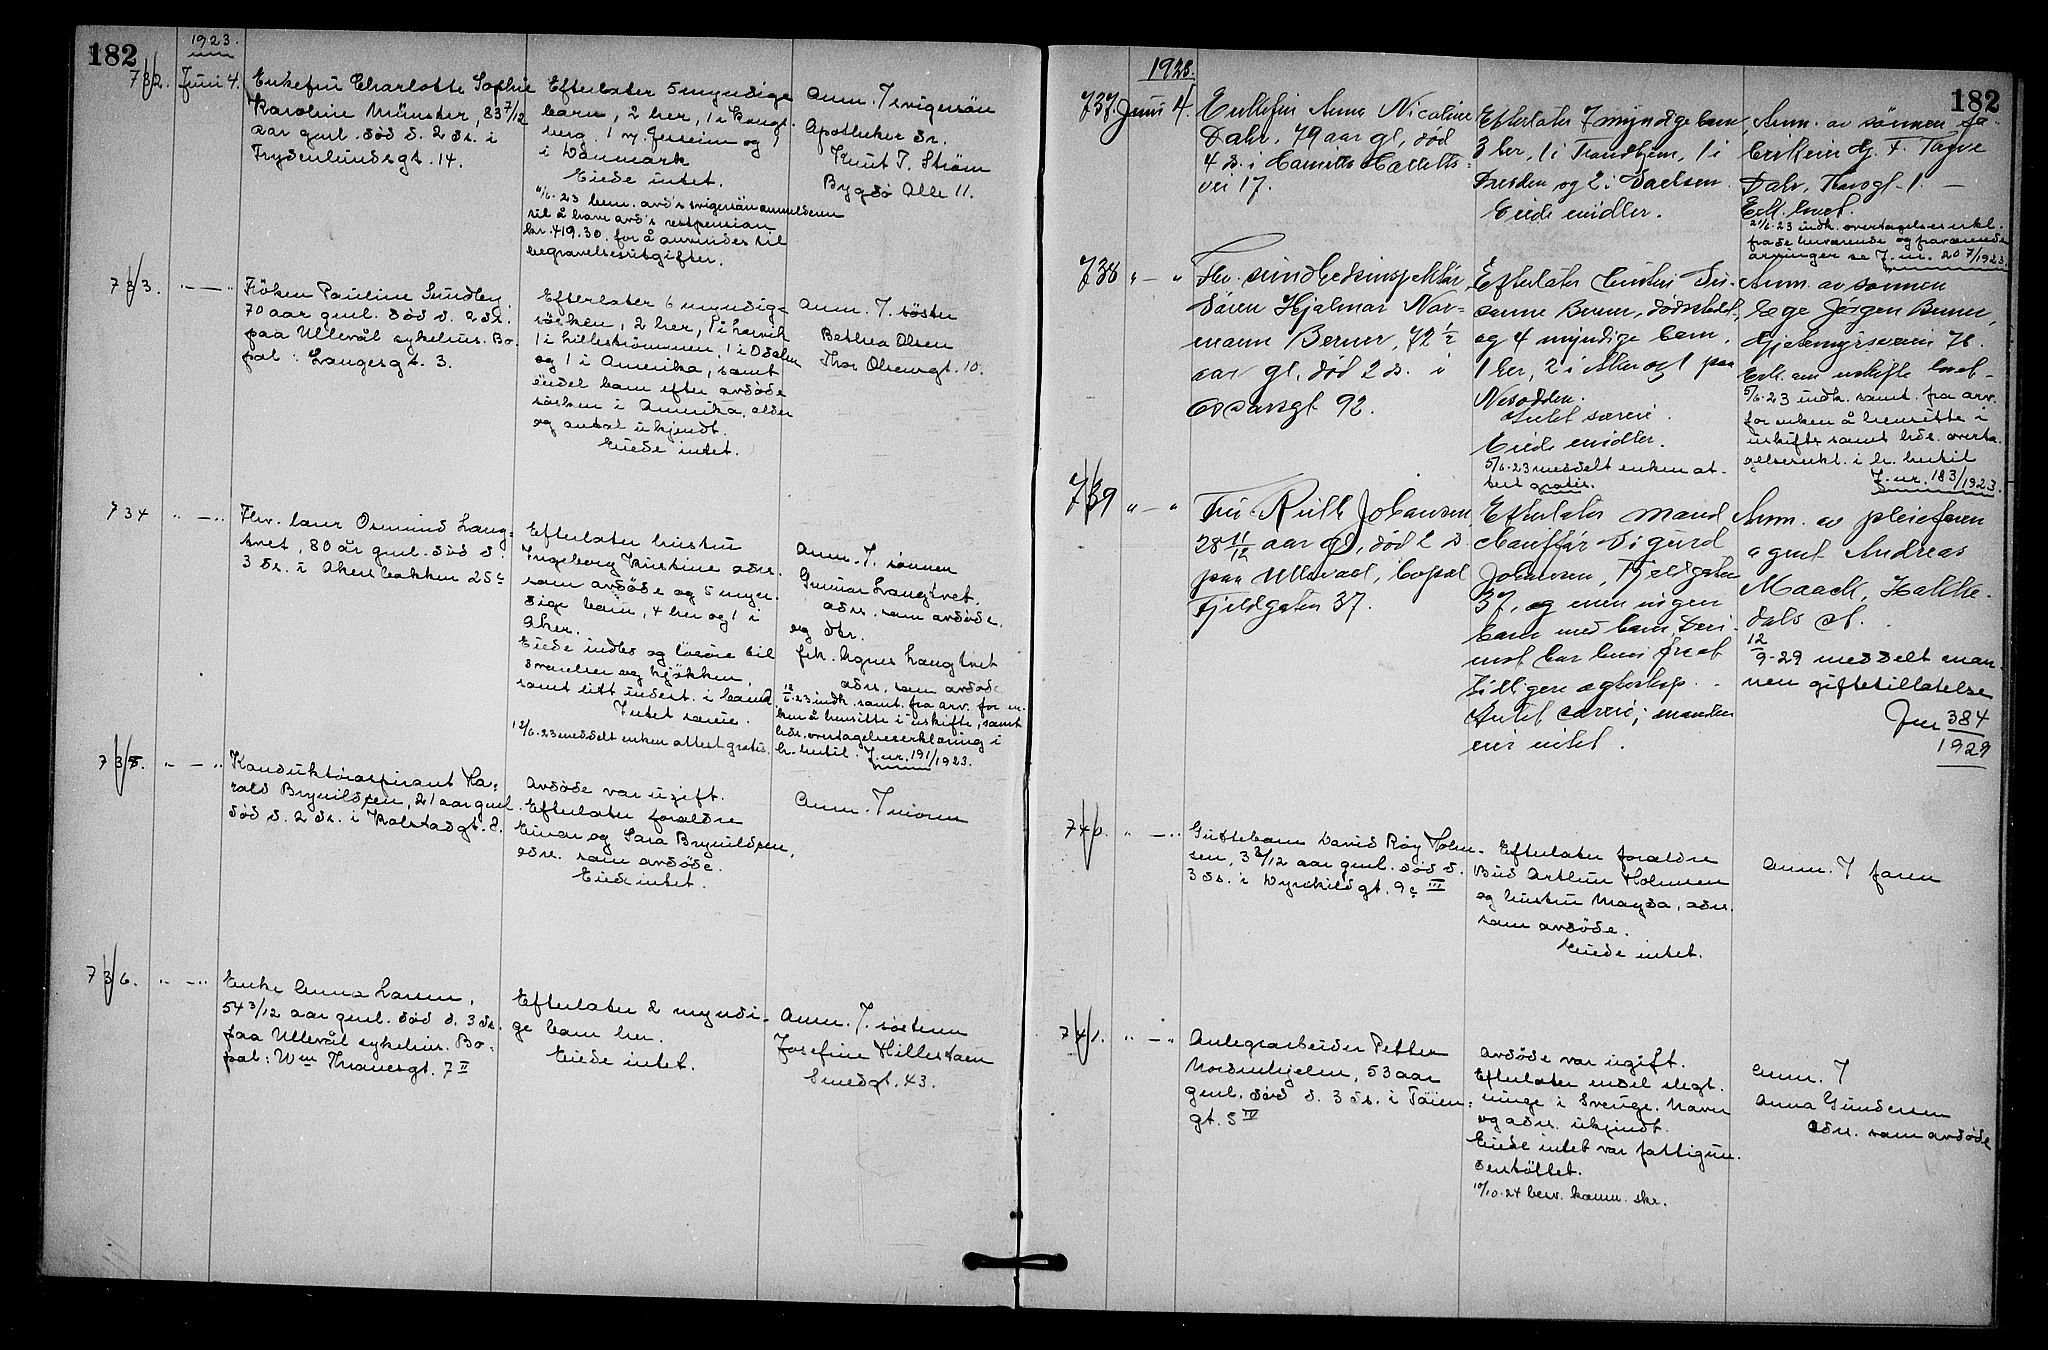 182
1923.
732. Juni 4.
Enkefru Charlotte Sophie
Karoline Münster, 83 7/12
aar gml. död d. 2 ds. i
Frydenlundsgt. 14.
Efterlater 5 myndige
barn, 2 her, 1 i Kongs-
berg, 1 og 1
i Danmark
Eiede intet.
23 bem. avd's svigersön anmelderen
til å have avd's restpension
kr. 419.30. for å anvendes til
begravelsesutgifter.
Anm. J svigersön
Apotheker dr.
Knut T. Ström
Bygdö Alle 11.
733. " — "
Fröken Pauline Sundby
70 aar gml. död d. 2 ds.
paa Ullevål sykehus. Bo-
pæl: Langesgt. 3.
Efterlater 6 myndige
sösken, 2 her, 1 i Larvik
1 i Lillestrømmen, 1 i Odalen
og 1 i Amerika, samt
endel barn efter avdöde
sösken i Amerika, alder
og antal ukjendt.
Eiede intet.
Anm. J. söster
Bethea Olsen
Thor Olsensgt. 10.
734 " — "
Fhv. Osmund Lang-
tvet, 80 år gml. död d
3 ds. i Akersbakken 25c
Efterlater hustru
Ingeborg Kirstine adr.
som avdöde og 5 myn-
dige barn, 4 her og 1 i
Aker.
Eiede indbo og lösöre til
og kjökken,
samt litt indest. i bank
Intet særeie.
12/6-23 meddelt enken attest gratis.
Anm. J. sönnen
Gunnar Langtvet,
adr. som avdöde.
og dtr.
frk. Agnes Langtvet
adr. som avdöde
12/6-23 indk. samt. fra arv. for en-
ken å hensitte i uskifte, samt
hds. overtagelseserklæring i
h. hentil. J.nr. 191/1923.
735. " — "
Konduktöraspirant Ha-
rald Brynildsen, 21 aar gml.
död d. 2 ds. i Kolstadgt. 8.
Avdöde var ugift.
Efterlater forældre
Einar og Sara Brynildsen,
adr. som avdöde.
Eiede intet.
Anm. J moren
736. " — "
Enke Anna Larsen,
54 3/12 aar gml. död d. 3 ds.
paa Ullevål sykehus. Bo-
pæl: Wm Thranesgt. 7 II
Efterlater 2 myndi-
ge barn her.
Eiede intet.
Anm. J. söstern
Josefine Hillestøen
Smedgt. 43.
182
1923.
737. Juni 4.
Enkefru Anna Nicoline
Dahr, 79 aar gl, död
4 ds. i Camilla Colletts
vei 17.
Efterlater 7 myndige barn
3 her, 1 i Trondhjem, 1 i
Dresden og 2 i Sachsen.
Eiede midler.
Anm. av sönnen fa-
brikeier F. Tryve
Dahr, 1. —
Erk. lovet.
21/6-23 indk. overtagelseserkl.
fra de herværende og fraværende
arvinger se J. nr. 207/1923.
738 " — "
Fhv. sundhedsinspektör
Sören Hjalmar Nor-
mann Berner, 72 1/2
aar gl, död 2 ds. i
Oscarsgt 92.
Efterlater hustru Su-
sanne Berner, dödsstedet,
og 4 myndige barn,
1 her, 2 i Aker og 1 paa
Nesodden.
Intet særeie.
Eiede midler.
5/6-23 meddelt enken at-
test gratis.
Anm. av sönnen
Læge Jörgen Berner,
Gjetemyrsveien 76.
Erk. om uskifte lovet
5/6-23 indk. samt. fra arv.
for enken å hensitte i
uskifte samt hds. overta-
gelseserkl. i h. hentil
J.nr. 183/1923.
739 " — "
Fru Ruth Johansen
28 11/12 aar gl, död 2 ds.
paa Ullevaal, bopæl
Fjeldgaten 37.
Efterlater mand
chauffør Sigurd
Johansen, Fjeldgaten
37, og men ingen
barn med ham. Der-
imot har hun fra et
tidligere egteskap.
Intet særeie; manden
eier intet.
Anm. av pleiefaren
agent Andreas
Maack, Hakke-
dals st.
12/9-29 meddelt man-
nen giftetillatelse
Jnr 384
1929
740. " — "
Guttebarn David Roy Holm-
sen, 3 8/12 aar gml. död d.
3 ds. i Dyrkildgt. 9c III
Efterlater forældre
Bud Arthur Holmsen
og hustru Magda, adr.
som avdöde.
Eiede intet.
Anm. J faren
741. " — "
Anlegsarbeider Petter
Nordenhjelm, 53 aar
gml. död d. 3 ds. i Töien-
gt. 5 IV
Avdöde var ugift.
Efterlater endel slegt-
ninge i Sverige. Navn
og adr. ukjendt.
Eiede intet var fattigun-
derstöttet.
10/10-24 besv. komm. skr.
Anm. J
Anna Gundersen
adr. som avdöde